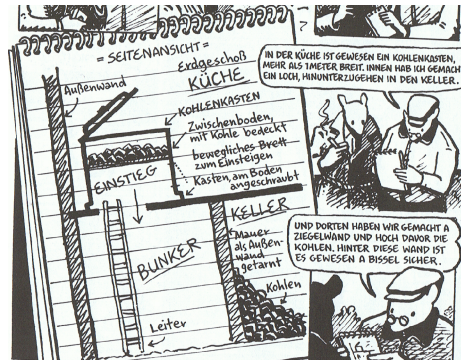 = SEITENANSICHT =
Erdgeschoß
KÜCHE
Außenwand
KOHLENKASTEN
Zwischenboden,
mit Kohle bedeckt
bewegliches Brett
zum Einsteigen
Kasten, am Boden
angeschraubt
EINSTIEG
KELLER
Mauer
als Außen-
wand
getarnt
BUNKER
Kohlen
Leiter
IN DER KÜCHE IST GEWESEN EIN KOHLENKASTEN,
MEHR ALS 1 METER BREIT. INNEN HAB ICH GEMACHT
EIN LOCH, HINUNTERZUGEHEN IN DEN KELLER.
UND DORTEN HABEN WIR GEMACHT A
ZIEGELWAND UND HOCH DAVOR DIE
KOHLEN. HINTER DIESE WAND IST
ES GEWESEN A BISSEL SICHER.